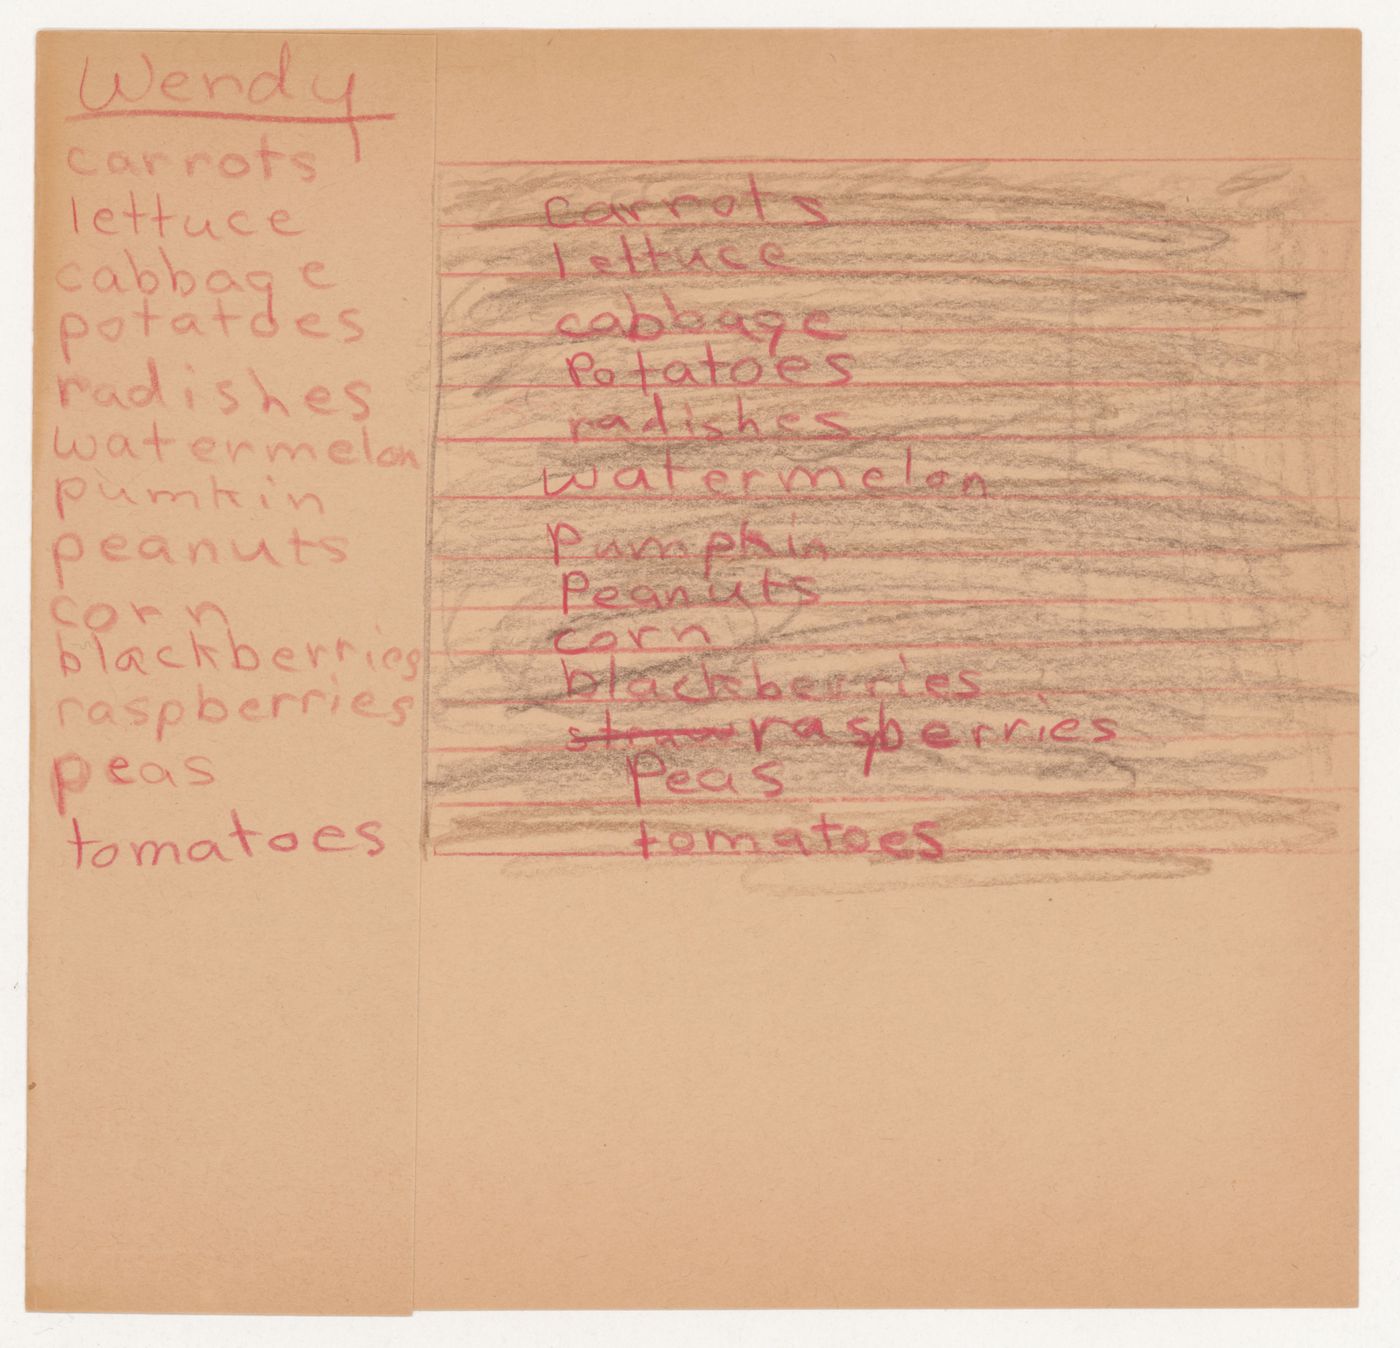 Wendy
carrots
lettuce
cabbage
potatoes
radishes
watermelon
pumkin
peanuts
corn
blackberries
raspberries
peas
tomatoes
carrots
lettuce
cabbage
Potatoes
radishes
watermelon
Pumpkin
Peanuts
corn
blackberries
straw raspberries
Peas
tomatoes